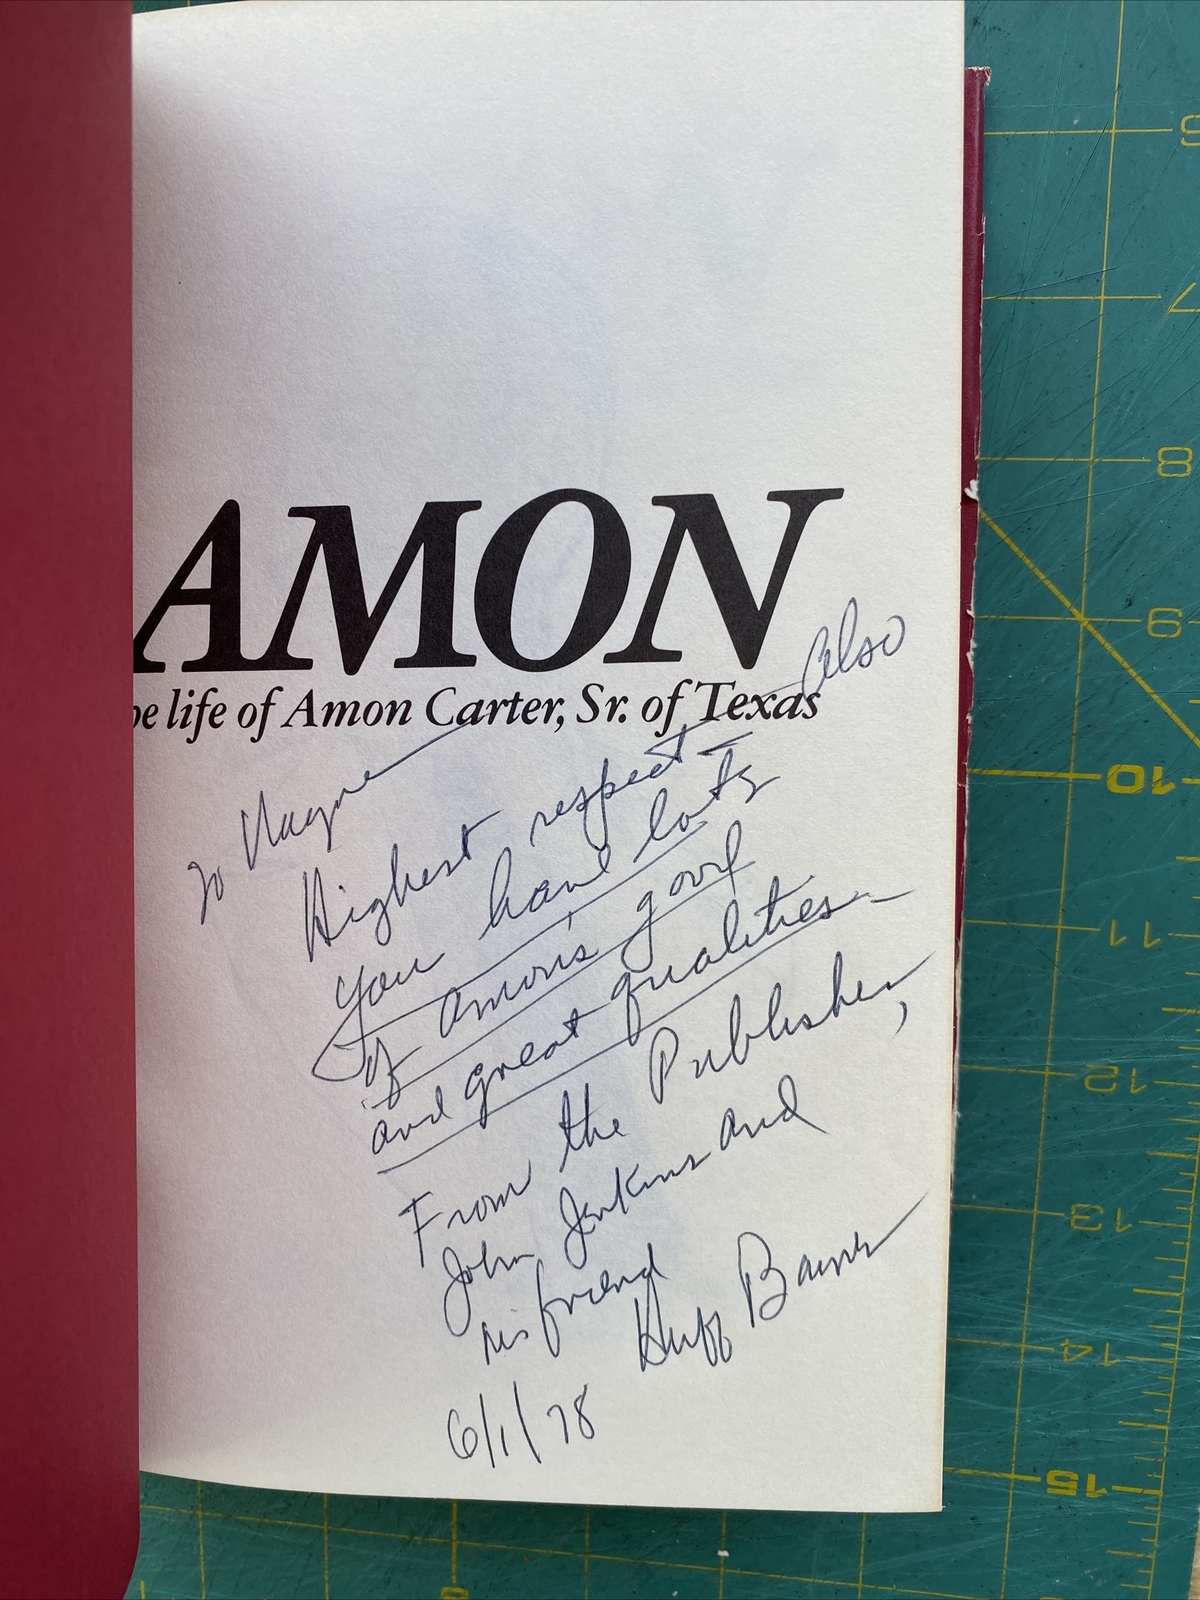 AMON
he life of Amon Carter, Sr. of Texas
To Wayne
Highest respect — Also
you have lots
of Amon's good
and great qualities —
From the Publisher,
John Jenkins and
his friend
Huff Baines
6/1/78
6
7
8
9
10
11
12
13
14
15
8